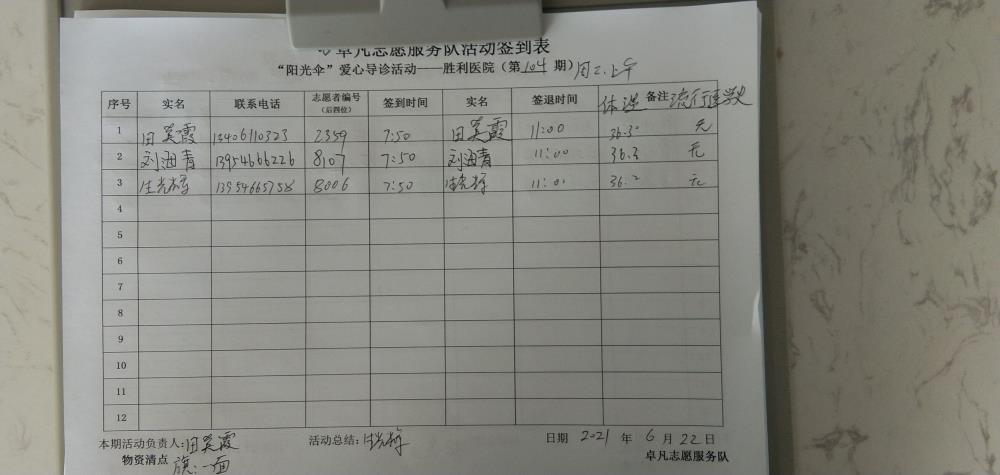 卓凡志愿服务队活动签到表
“阳光伞”爱心导诊活动——胜利医院（第104期）周二.上午
序号 实名 联系电话 志愿者编号（后四位） 签到时间 实名 签退时间 体温 备注 流行病学史
1 田美霞 13406110323 2359 7:50 田美霞 11:00 36.3° 无
2 刘海青 13954666226 8107 7:50 刘海青 11:00 36.3 无
3 8006 7:50 11:01 36.2 无
4
5
6
7
8
9
10
11
12
本期活动负责人:田美霞 活动总结: 日期 2021 年 6 月 22 日
物资清点 旗:一面 卓凡志愿服务队